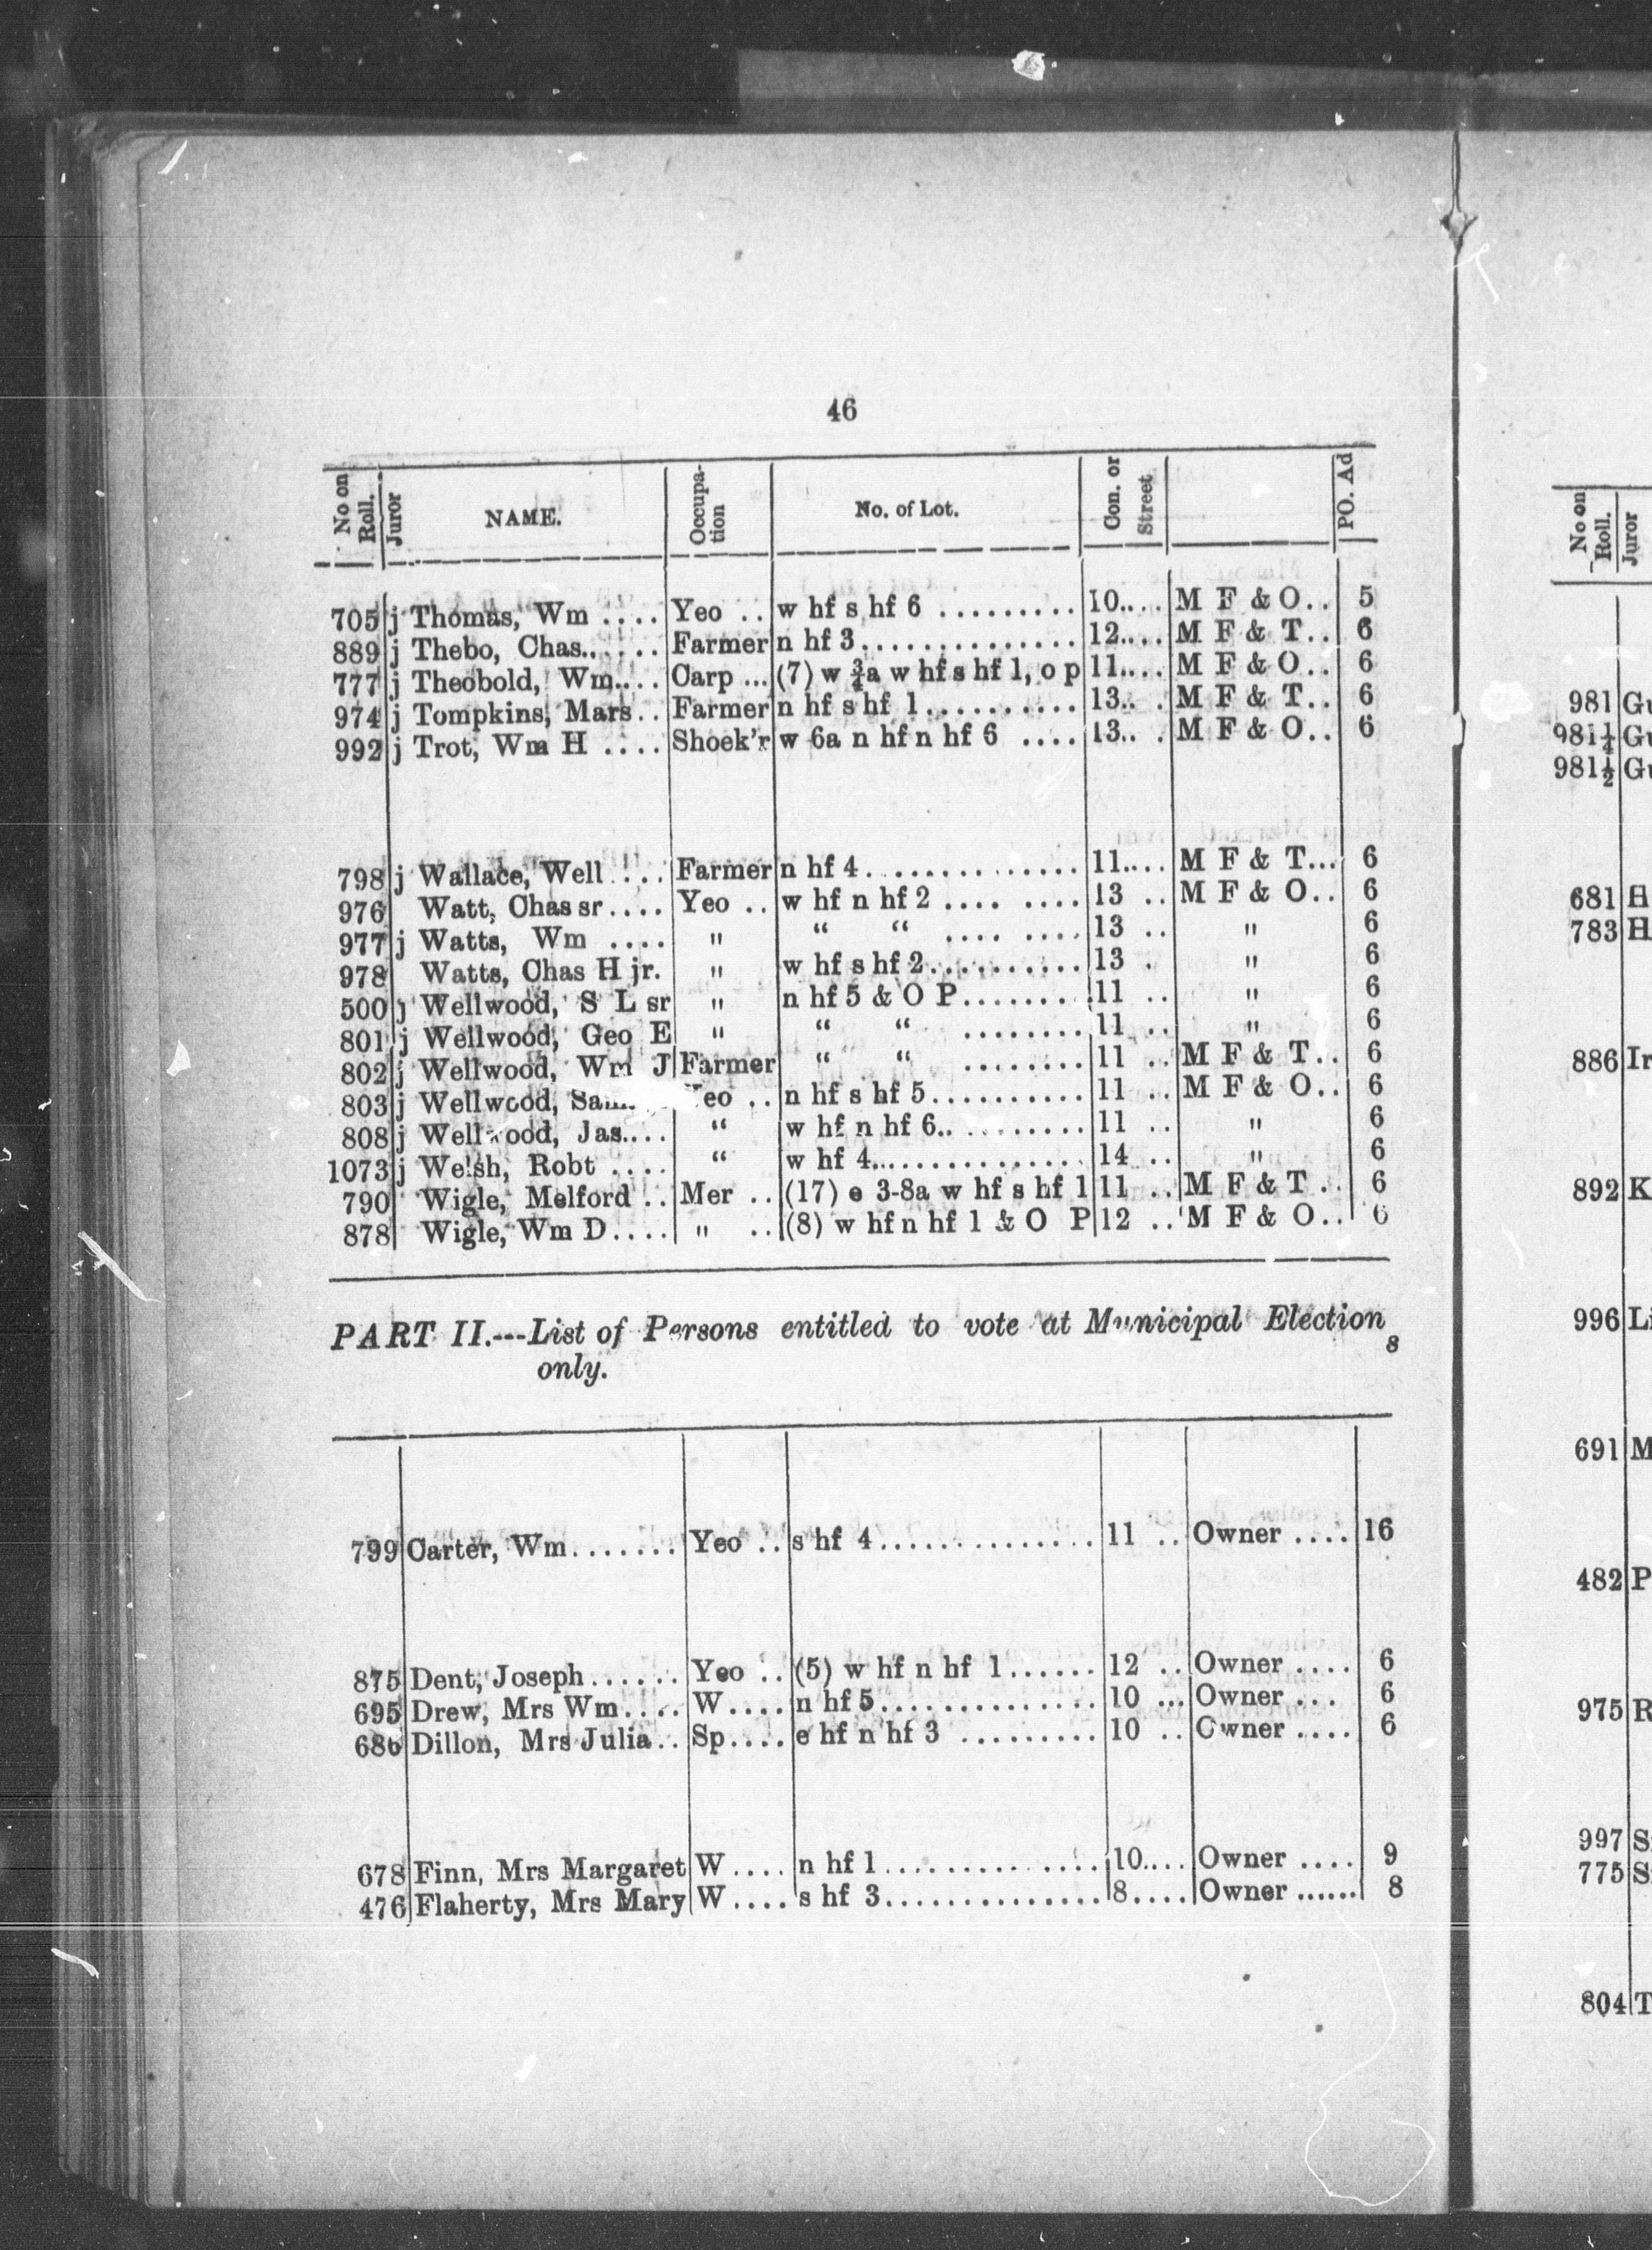 46
No on Roll. Juror NAME. Occupa-tion No. of Lot. Con. or Street PO. Ad
705 j Thomas, Wm .... Yeo .. w hf s hf 6 ......... 10.... M F & O.. 5
889 j Thebo, Chas...... Farmer n hf 3.............. 12.... M F & T.. 6
777 j Theobold, Wm.... Carp ... (7) w ¾a w hf s hf 1, o p 11.... M F & O.. 6
974 j Tompkins, Mars.. Farmer n hf s hf 1.......... 13.. . M F & T.. 6
992 j Trot, Wm H .... Shoek'r w 6a n hf n hf 6 .... 13.. . M F & O.. 6
798 j Wallace, Well .... Farmer n hf 4.............. 11.... M F & T... 6
976 Watt, Chas sr.... Yeo .. w hf n hf 2 .... .... 13 .. M F & O.. 6
977 j Watts, Wm .... " “ “ .... .... 13 .. " 6
978 Watts, Chas H jr. " w hf s hf 2.......... 13 . " 6
500 j Wellwood, S L sr " n hf 5 & O P........ 11 .. " 6
801 j Wellwood, Geo E " “ “ ........ 11 .. " 6
802 j Wellwood, Wm J Farmer “ “ ........ 11 .. M F & T.. 6
803 j Wellwood, eo .. n hf s hf 5.......... 11 .. M F & O.. 6
808 j Wellwood, Jas.... “ w hf n hf 6.. ........ 11 .. " 6
1073 j Welsh, Robt .... “ w hf 4............... 14 .. " 6
790 Wigle, Melford .. Mer .. (17) e 3-8a w hf s hf 1 11 .. M F & T .. 6
878 Wigle, Wm D.... " .. (8) w hf n hf 1 & O P 12 .. M F & O.. 6
PART II.---List of Persons entitled to vote at Municipal Election
s
only.
799 Carter, Wm....... Yeo .. s hf 4.............. 11 .. Owner .... 16
875 Dent, Joseph...... Yeo .. (5) w hf n hf 1...... 12 .. Owner .... 6
695 Drew, Mrs Wm.... W.... n hf 5.............. 10 ... Owner ... 6
686 Dillon, Mrs Julia.. Sp.... e hf n hf 3 ......... 10 .. Owner .... 6
678 Finn, Mrs Margaret W .... n hf 1.............. 10.... Owner .... 9
476 Flaherty, Mrs Mary W .... s hf 3.............. 8.... Owner ...... 8
No on Roll. Juror
981 Gu
981¼ Gu
981½ Gu
681 H
783 H
886 Ir
892 K
996 Li
691 M
482 P
975 R
997 S
775 S
804 T